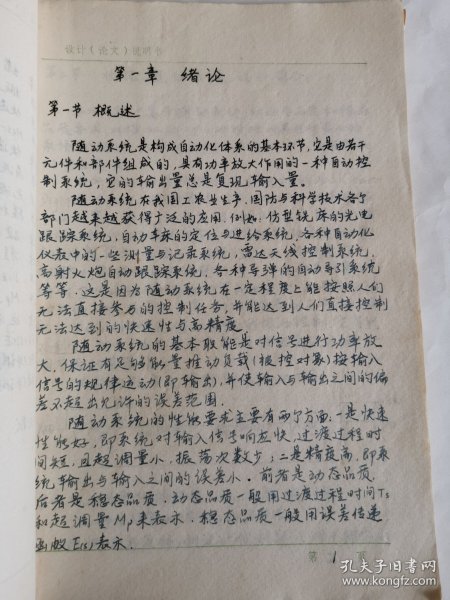 设计(论文)说明书
第一章 绪论
第一节 概述
随动系统是构成自动化体系的基本环节,它是由若干
元件和部件组成的,具有功率放大作用的一种自动控
制系统,它的输出量总是复现输入量。
随动系统在我国工农业生产、国防与科学技术各个
部门越来越获得广泛的应用.例如:仿型铣床的光电
跟踪系统,自动车床的定位与进给系统,各种自动化
仪表中的一些测量与记录系统,雷达天线控制系统,
高射火炮自动跟踪系统,各种导弹的自动导引系统
等等.这是因为随动系统在一定程度上能按照人们
无法直接参与的控制任务,并能达到人们直接控制
无法达到的快速性与高精度
随动系统的基本职能是对信号进行功率放
大,保证有足够能量推动负载(被控对象)按输入
信号的规律运动(即输出),并使输入与输出之间的偏
差不超出允许的误差范围.
随动系统的性能要求主要有两个方面:一是快速
性能好,即系统对输入信号响应快,过渡过程时
间短,且超调量小,振荡次数少;二是精度高,即系
统输出与输入之间的误差小.前者是动态品质,
后者是稳态品质,动态品质一般用过渡过程时间Ts
和超调量Mp来表示.稳态品质一般用误差传递
函数E(s)表示.
第 1 页
孔夫子旧书网